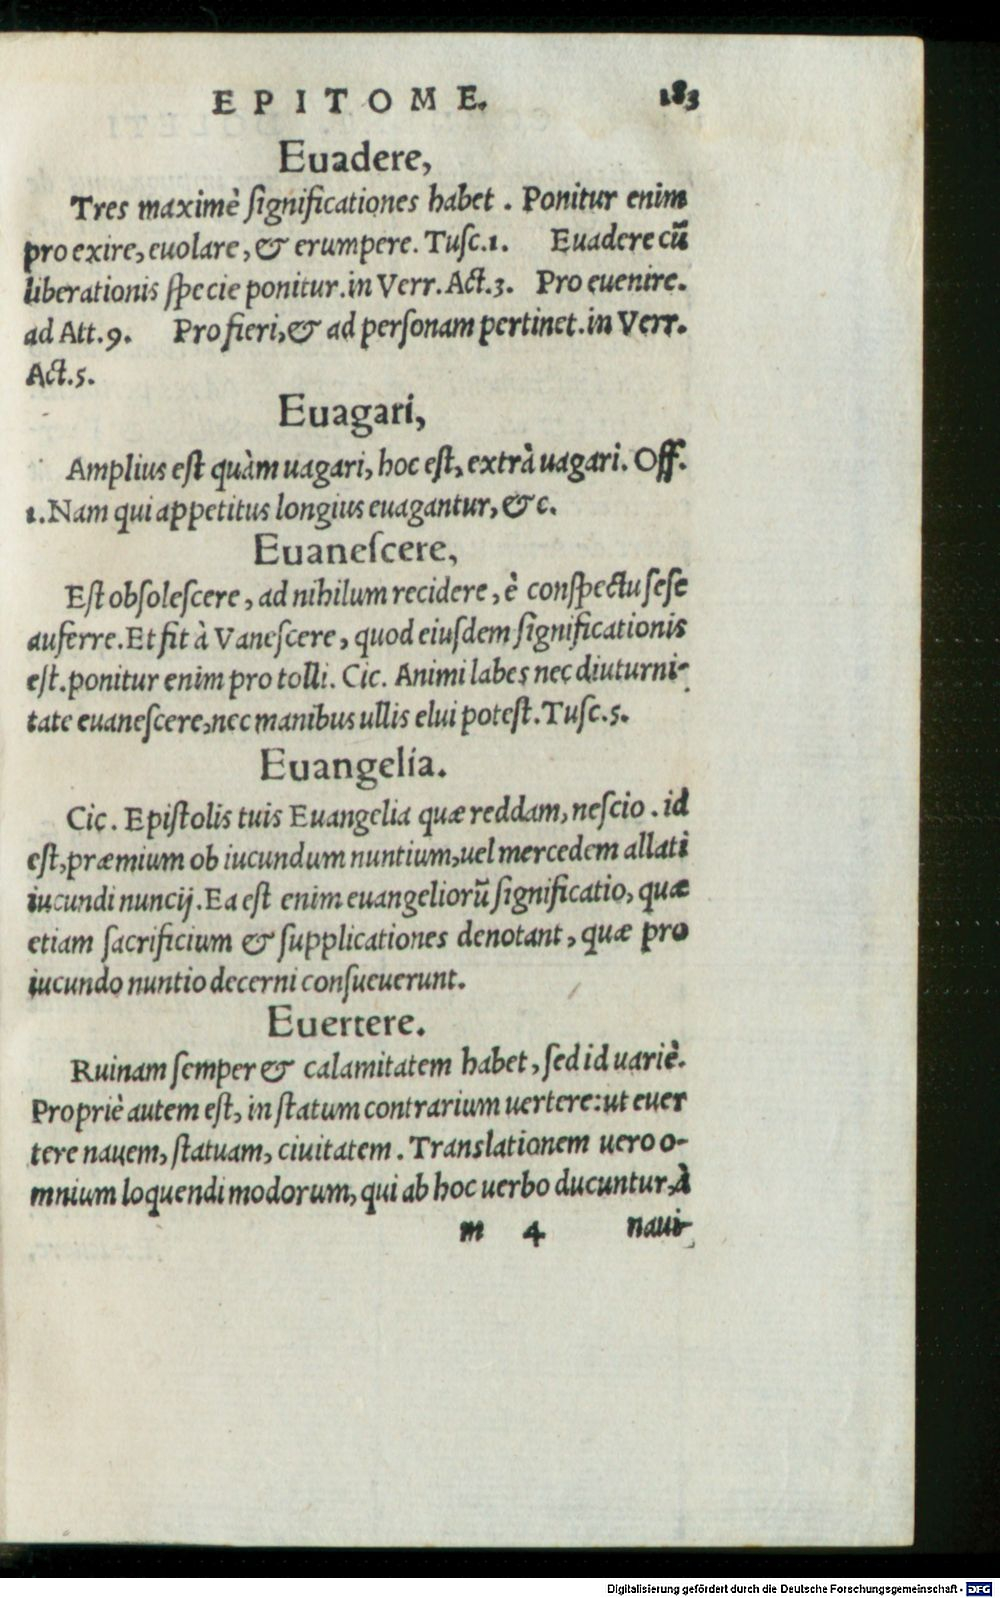 EPITOME. 183
Euadere,
Tres maximè significationes habet. Ponitur enim
pro exire, euolare, & erumpere. Tusc.1. Euadere cũ
liberationis specie ponitur. in Verr. Act.3. Pro euenire.
ad Att.9. Pro fieri, & ad personam pertinet. in Verr.
Act.5.
Euagari,
Amplius est quàm uagari, hoc est, extrà uagari. Off.
1. Nam qui appetitus longius euagantur, &c.
Euanescere,
Est obsolescere, ad nihilum recidere, è conspectu sese
auferre. Et fit à Vanescere, quod eiusdem significationis
est. ponitur enim pro tolli. Cic. Animi labes nec diuturni-
tate euanescere, nec manibus ullis elui potest. Tusc.5.
Euangelia.
Cic. Epistolis tuis Euangelia quæ reddam, nescio. id
est, præmium ob iucundum nuntium, uel mercedem allati
iucundi nuncij. Ea est enim euangeliorũ significatio, quæ
etiam sacrificium & supplicationes denotant, quæ pro
iucundo nuntio decerni consueuerunt.
Euertere.
Ruinam semper & calamitatem habet, sed id uariè.
Propriè autem est, in statum contrarium uertere: ut euer
tere nauem, statuam, ciuitatem. Translationem uero o-
mnium loquendi modorum, qui ab hoc uerbo ducuntur, à
m 4 naui-
Digitalisierung gefördert durch die Deutsche Forschungsgemeinschaft - DFG